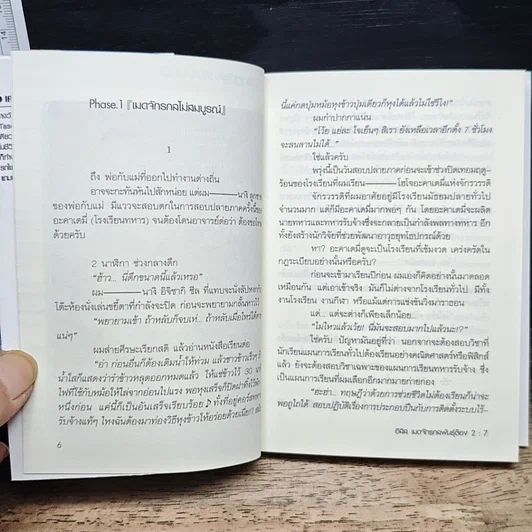 Phase.1 『เมดจักรกลไม่สมบูรณ์』
1
ถึง พ่อกับแม่ที่ออกไปทำงานต่างถิ่น
อาจจะกะทันหันไปสักหน่อย แต่ผม———นางิ
ของพ่อกับแม่ มีแววจะสอบตกในการสอบปลายภาคครั้งนี้
อะคาเดมี่ (โรงเรียนทหาร) จนต้องโดนอาจารย์ต่อว่า
ด้วยครับ
2 นาฬิกา ช่วงกลางดึก
“ฮ้าว... นี่ดึกขนาดนี้แล้วเหรอ”
ผม———นางิ อิจิซากิ
โต๊ะห้องนั่งเล่นขยี้ตาที่กำลังจะปิด ก่อนจะพยายาม
“พยายามเข้า ถ้าหลับก็จบเห่... ถ้าหลับเมื่อไหร่ได้
แน่ๆ”
ผมส่ายศีรษะเรียกสติ แล้วอ่านหนังสือเรียนต่อ
“อ่า ก่อนอื่นก็ต้องเติมน้ำให้ท่วม แล้วซาวข้าวเร็วๆ
น้ำใสก็แสดงว่ารำข้าวหลุดออกหมดแล้ว ให้แช่ข้าวไว้ 30
ไฟที่ใช้กับหม้อให้ไล่จากอ่อนไปแรง พอหุงเสร็จก็ปิดฝาตั้งไว้
หนึ่งก่อน แค่นี้ก็เป็นอันเสร็จเรียบร้อย♪
รับจ้างแท้ๆ ไหงฉันต้องมาท่องวิธีหุงข้าวให้อร่อยด้วยเนี่ย?
6
นี้แค่กดปุ่มหม้อหุงข้าวปุ่มเดียวก็หุงได้แล้วไม่ใช่รึไง!”
ผมกำปากกาแน่น
“โว้ย แย่ละ ใจเย็นๆ สิเรา ยังเหลือเวลาอีกตั้ง 7 ชั่วโมง
จะลนลานไม่ได้...”
ใช่แล้วครับ
พรุ่งนี้เป็นวันสอบปลายภาคก่อนจะเข้าช่วงปิดเทอมฤดู-
ร้อนของโรงเรียนที่ผมเรียน———โฮโจอะคาเดมี่แห่งจักรวรรดิ
จักรวรรดิที่ผมอาศัยอยู่มีโรงเรียนมัธยมปลายทั่วไป
จำนวนมาก แต่ก็มีอะคาเดมี่มากพอๆ กัน โดยอะคาเดมี่จะผลิต
นายทหารและทหารรับจ้างซึ่งจะกลายเป็นกำลังพลทางทหาร อีก
ทั้งยังสร้างนักวิจัยที่ช่วยพัฒนาอาวุธยุทโธปกรณ์ด้วย
หา? อะคาเดมี่ดูจะเป็นโรงเรียนที่เข้มงวด เคร่งครัดใน
กฎระเบียบอย่างนั้นหรือครับ?
ก่อนจะเข้ามาเรียนปีก่อน ผมเองก็คิดอย่างนั้นมาตลอด
เหมือนกัน แต่เอาเข้าจริง มันก็ไม่ต่างจากโรงเรียนทั่วไป มีทั้ง
งานโรงเรียน งานกีฬา หรือแม้แต่การแข่งขันวิ่งมาราธอน
แต่... แต่จะต่างก็เพียงเล็กน้อย...
“ไม่ไหวแล้วเว้ย! นี่มันจะสอบมากไปแล้วนะ!?”
ใช่ครับ ปัญหามันอยู่ที่ว่า นอกจากจะต้องสอบวิชาที่
นักเรียนแผนการเรียนทั่วไปต้องเรียนอย่างคณิตศาสตร์หรือฟิสิกส์
แล้ว ยังจะต้องสอบวิชาเฉพาะของแผนการเรียนทหารรับจ้าง ซึ่ง
เป็นแผนการเรียนที่ผมเลือกอีกมากมายก่ายกอง
“ฮะฮ่า... ทฤษฎีว่าด้วยการช่วยชีวิตไม่ต้องเรียนก็น่าจะ
พอถูไถได้ สอบปฏิบัติเรื่องการประกอบปืนกับการติดตั้งระบบไร้-
อิคิล เมดจักรกลพันธุ์ต๊อง 2 : 7